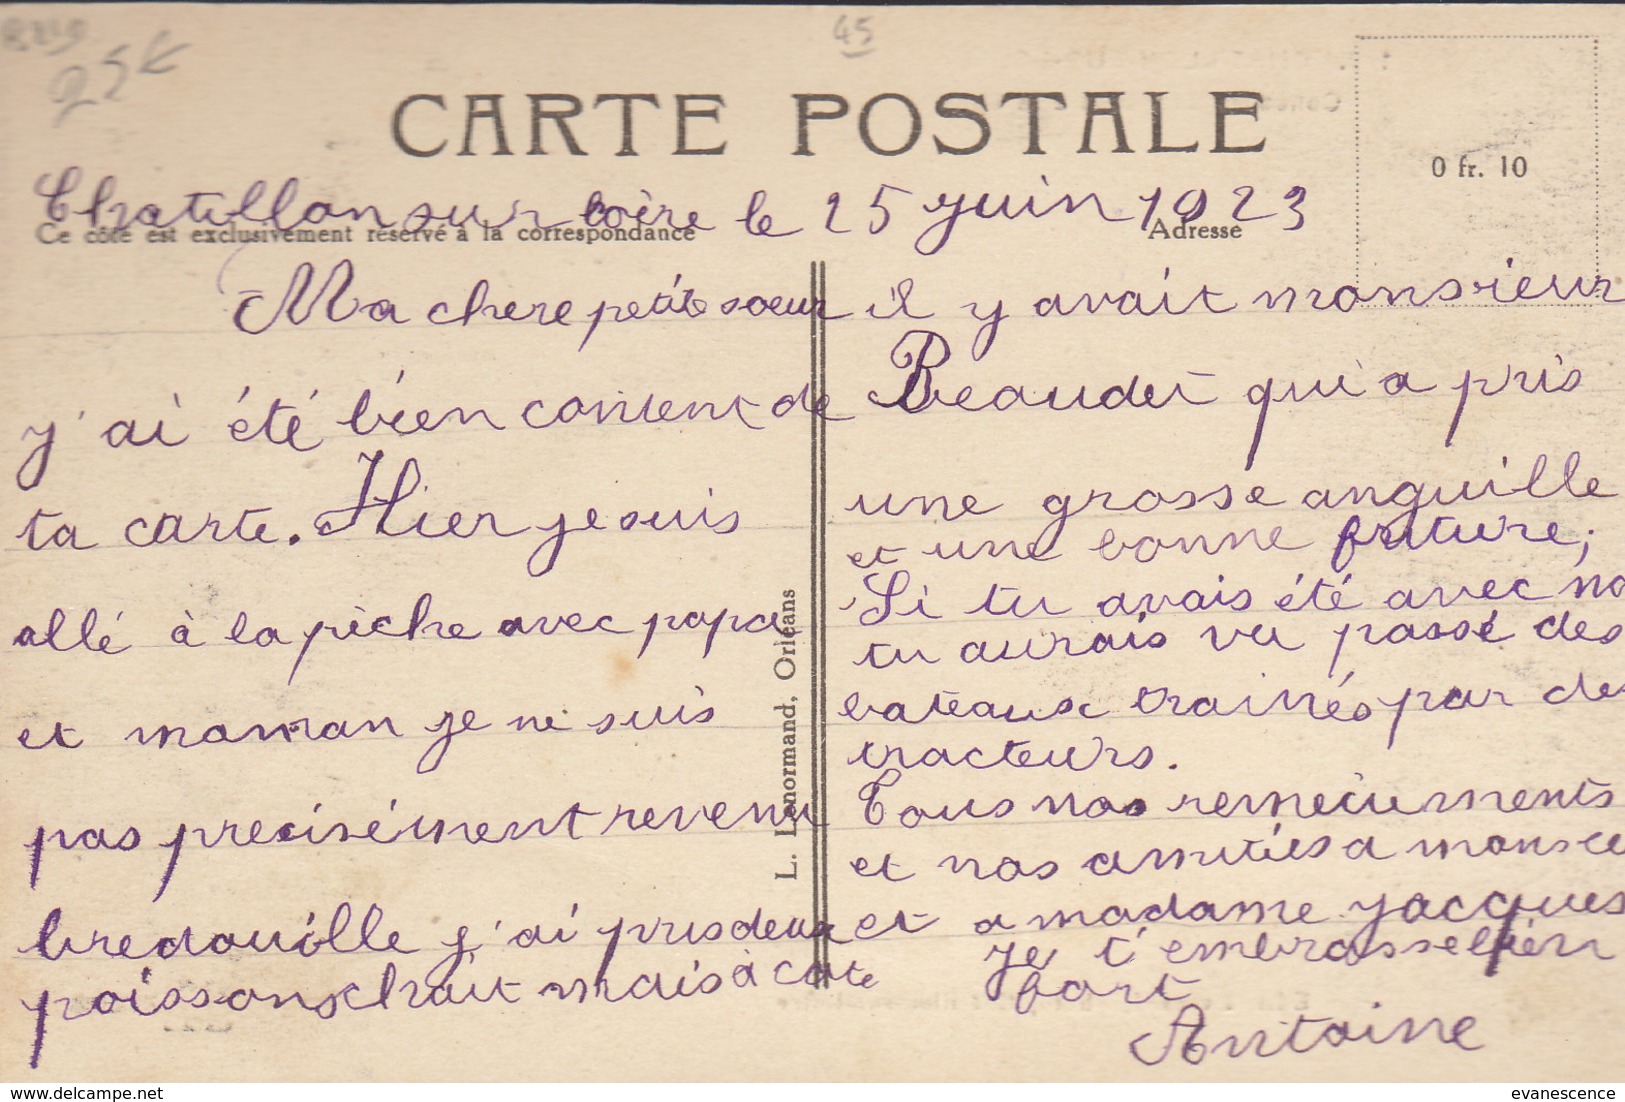 25€
45
CARTE POSTALE
0 fr. 10
Chatillon sur loire le 25 juin 1923
Ce côté est exclusivement réservé à la correspondance
Adresse
Ma chere petite soeur
j'ai été bien content de
ta carte. Hier je suis
allé à la pèche avec papa
et maman je ne suis
pas precisément revenu
bredouille j'ai pris deux
poissons mais à cote
il y avait monsieur
Beaudet qui a pris
une grosse anguille
et une bonne friture;
Si tu avais été avec no
tu aurais vu passé des
bateaux trainés par de
tracteurs.
Tous nos remeciements
et nos amitiés a mons
et a madame Jacques
Je t'embrasse bien
fort
Antoine
L. Lenormand, Orléans
delcampe.net
evanescence